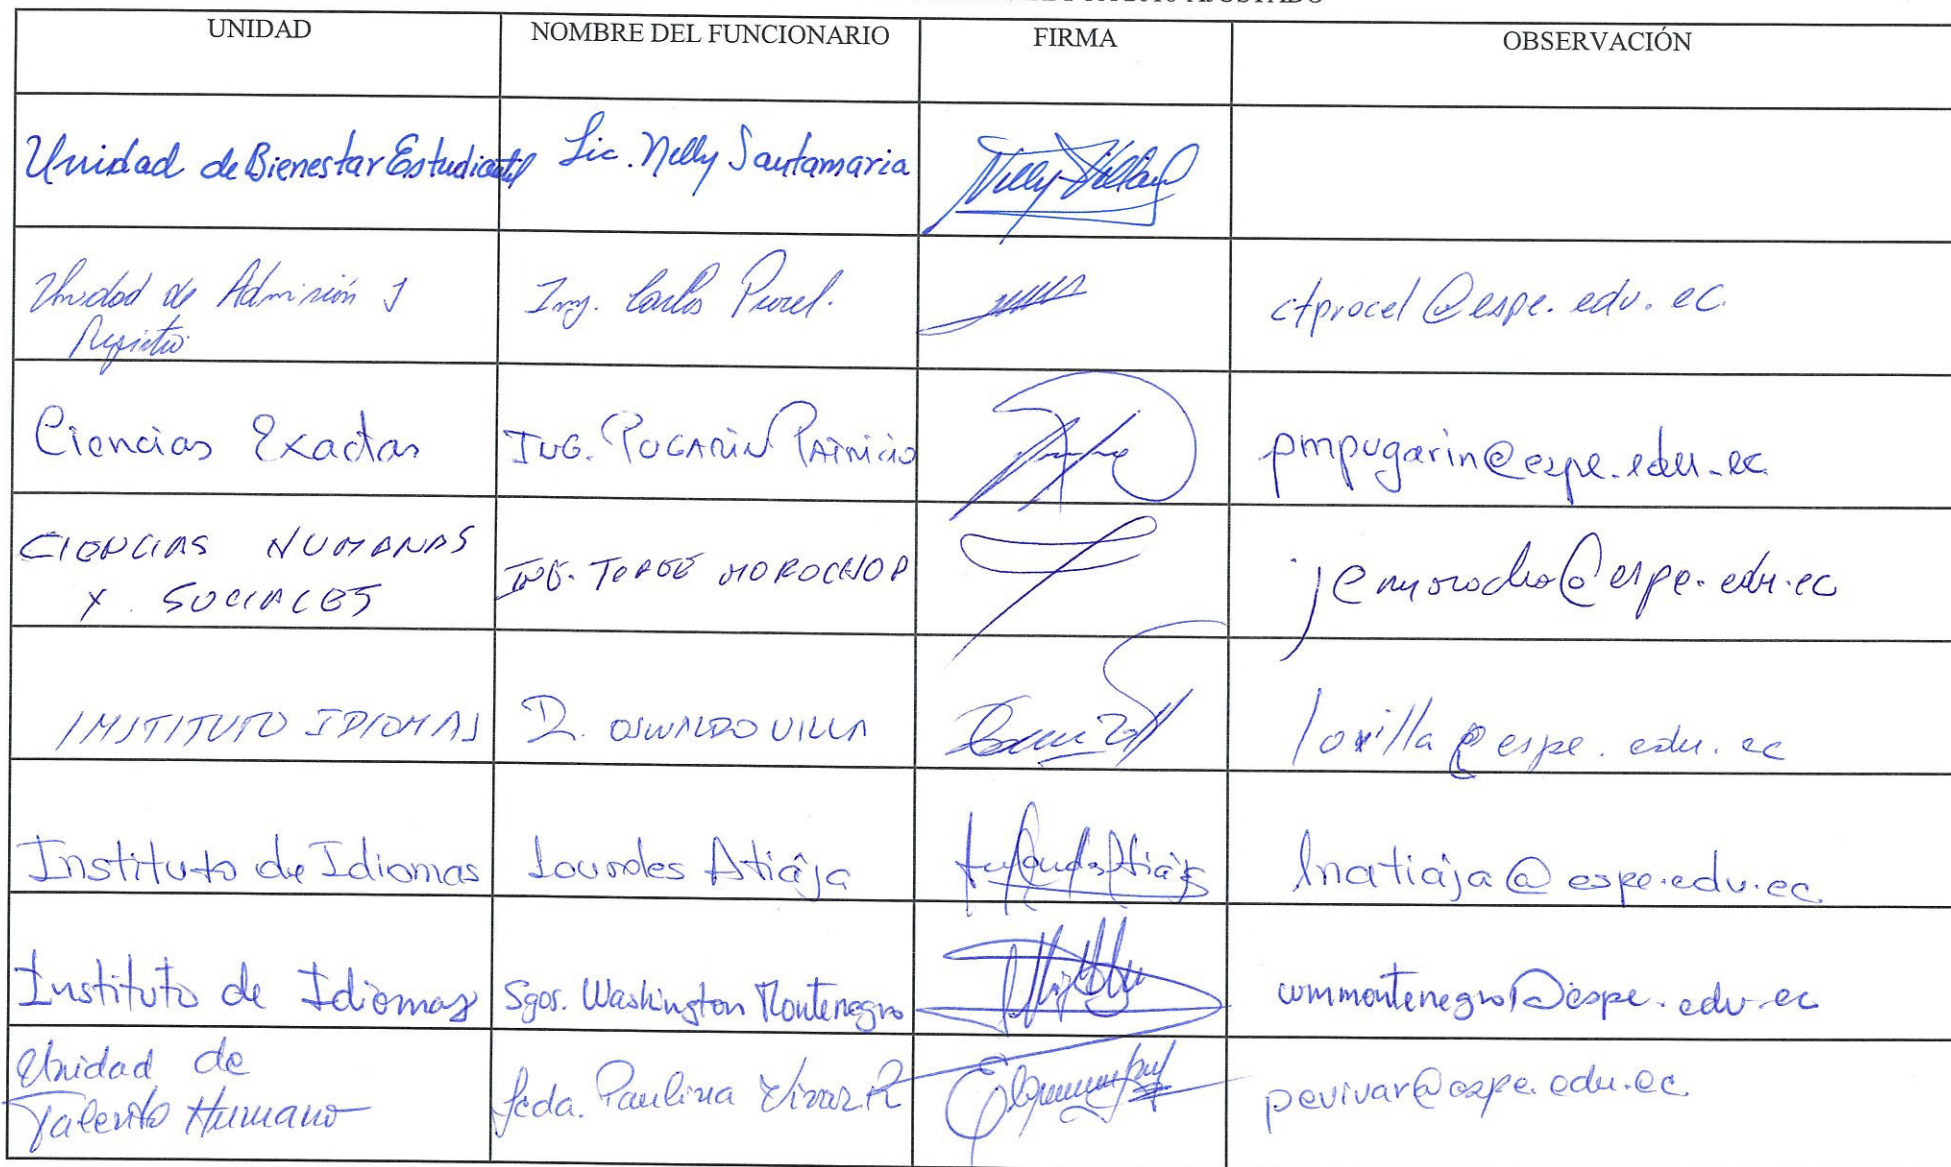 AJUSTADO
UNIDAD NOMBRE DEL FUNCIONARIO FIRMA OBSERVACIÓN
Unidad de Bienestar Estudiantil Lic. Nelly Santamaria
Unidad de Admisión y Ing. Carlos Procel. ctprocel@espe.edu.ec
Registro
Ciencias Exactas ING. PUGARIN PATRICIO pmpugarin@espe.edu.ec
CIENCIAS HUMANAS ING. JORGE MOROCHO jemorocho@espe.edu.ec
Y SOCIALES
INSTITUTO IDIOMAS D. OSWALDO VILLA lovilla@espe.edu.ec
Instituto de Idiomas Lourdes Atiaja lnatiaja@espe.edu.ec
Instituto de Idiomas Sgos. Washington Montenegro wmmontenegro@espe.edu.ec
Unidad de Lcda. Paulina Vivar R pevivar@espe.edu.ec
Talento Humano